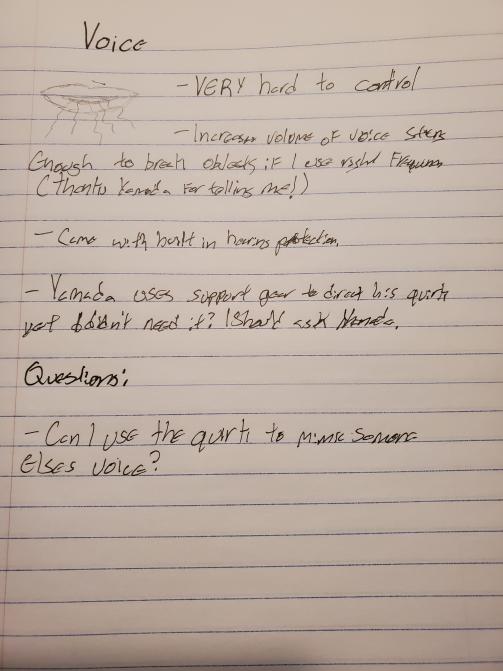 Voice
- VERY hard to control
- Increases volume of voice
Enough to break objects if I use right Frequency
(Thanks Yamada For telling me!)
- Came with built in hearing protection
- Yamada uses support gear to direct his quirk
yet I didn't need it? I Should ask Yamada.
Questions:
- Can I use the quirk to mimic someone
Elses voice?